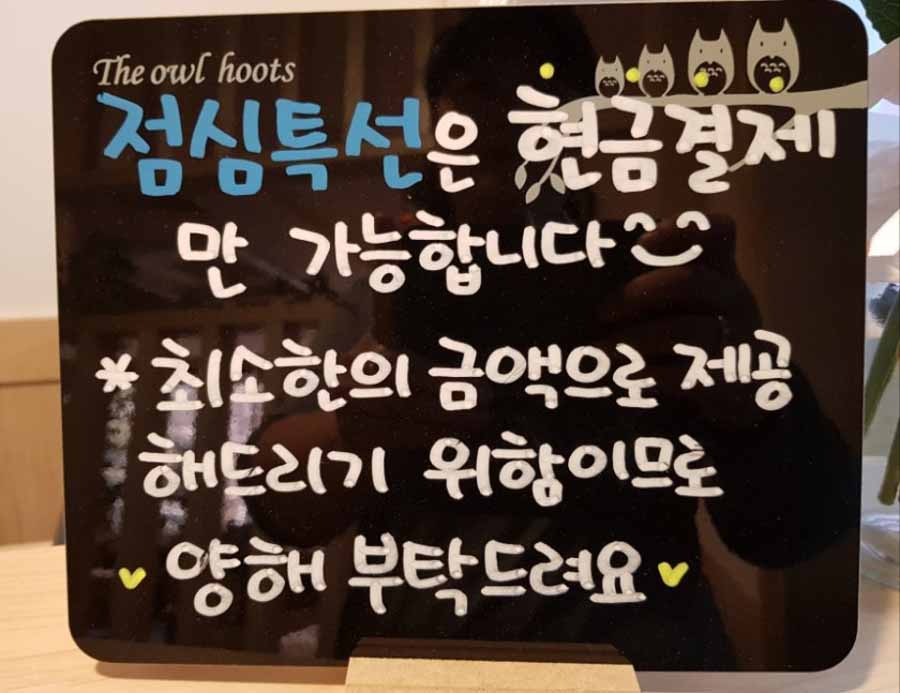 The owl hoots
점심특선은 현금결제
만 가능합니다
* 최소한의 금액으로 제공
해드리기 위함이므로
양해 부탁드려요